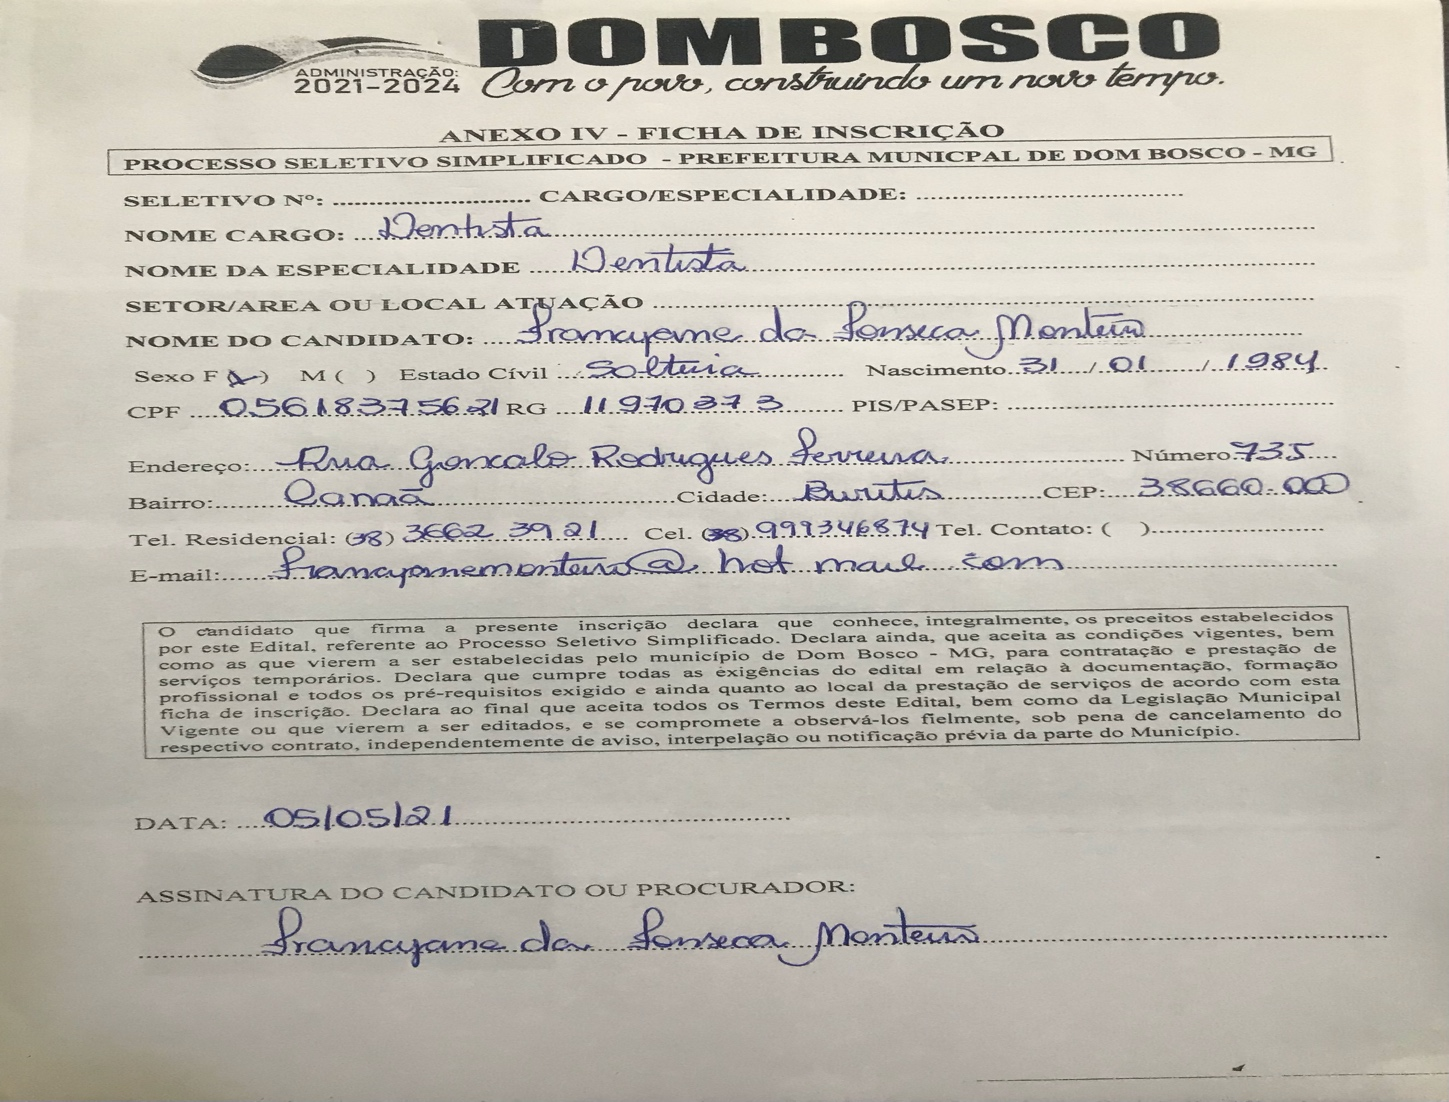 DOM BOSCO
ADMINISTRAÇÃO:
2021-2024 Com o povo, construindo um novo tempo.
ANEXO IV - FICHA DE INSCRIÇÃO
PROCESSO SELETIVO SIMPLIFICADO - PREFEITURA MUNICPAL DE DOM BOSCO - MG
SELETIVO Nº: ............................ CARGO/ESPECIALIDADE: ........................................
NOME CARGO: ...Dentista........................................
NOME DA ESPECIALIDADE .....Dentista........................................
SETOR/AREA OU LOCAL ATUAÇÃO ........................................
NOME DO CANDIDATO: ....Francyane da Fonseca Monteiro....................
Sexo F (x) M ( ) Estado Cívil ...Solteira............ Nascimento..31..../.01....../.1984.
CPF ...05618375621 RG ...11970373....... PIS/PASEP: ........................................
Endereço:...Rua Goncalo Rodrigues Ferreira........................ Número.735....
Bairro:.......Canaã..............................Cidade:...Buritis............CEP:...38660.000
Tel. Residencial: (38) 3662 3921.... Cel. (38).999346874 Tel. Contato: ( )........................
E-mail:......francyanemonteiro@hotmail.com........................................
O candidato que firma a presente inscrição declara que conhece, integralmente, os preceitos estabelecidos
por este Edital, referente ao Processo Seletivo Simplificado. Declara ainda, que aceita as condições vigentes, bem
como as que vierem a ser estabelecidas pelo município de Dom Bosco - MG, para contratação e prestação de
serviços temporários. Declara que cumpre todas as exigências do edital em relação à documentação, formação
profissional e todos os pré-requisitos exigido e ainda quanto ao local da prestação de serviços de acordo com esta
ficha de inscrição. Declara ao final que aceita todos os Termos deste Edital, bem como da Legislação Municipal
Vigente ou que vierem a ser editados, e se compromete a observá-los fielmente, sob pena de cancelamento do
respectivo contrato, independentemente de aviso, interpelação ou notificação prévia da parte do Município.
DATA: ....05/05/21........................................
ASSINATURA DO CANDIDATO OU PROCURADOR:
Francyane da Fonseca Monteiro